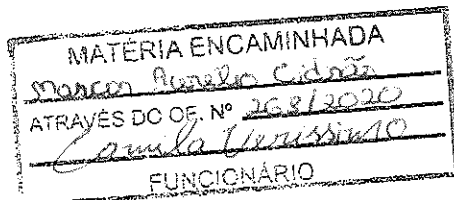 MATÉRIA ENCAMINHADA
Marcos Aurelio Cidrão
ATRAVÉS DO OF. Nº 268/2020
Camila Verissimo
FUNCIONÁRIO